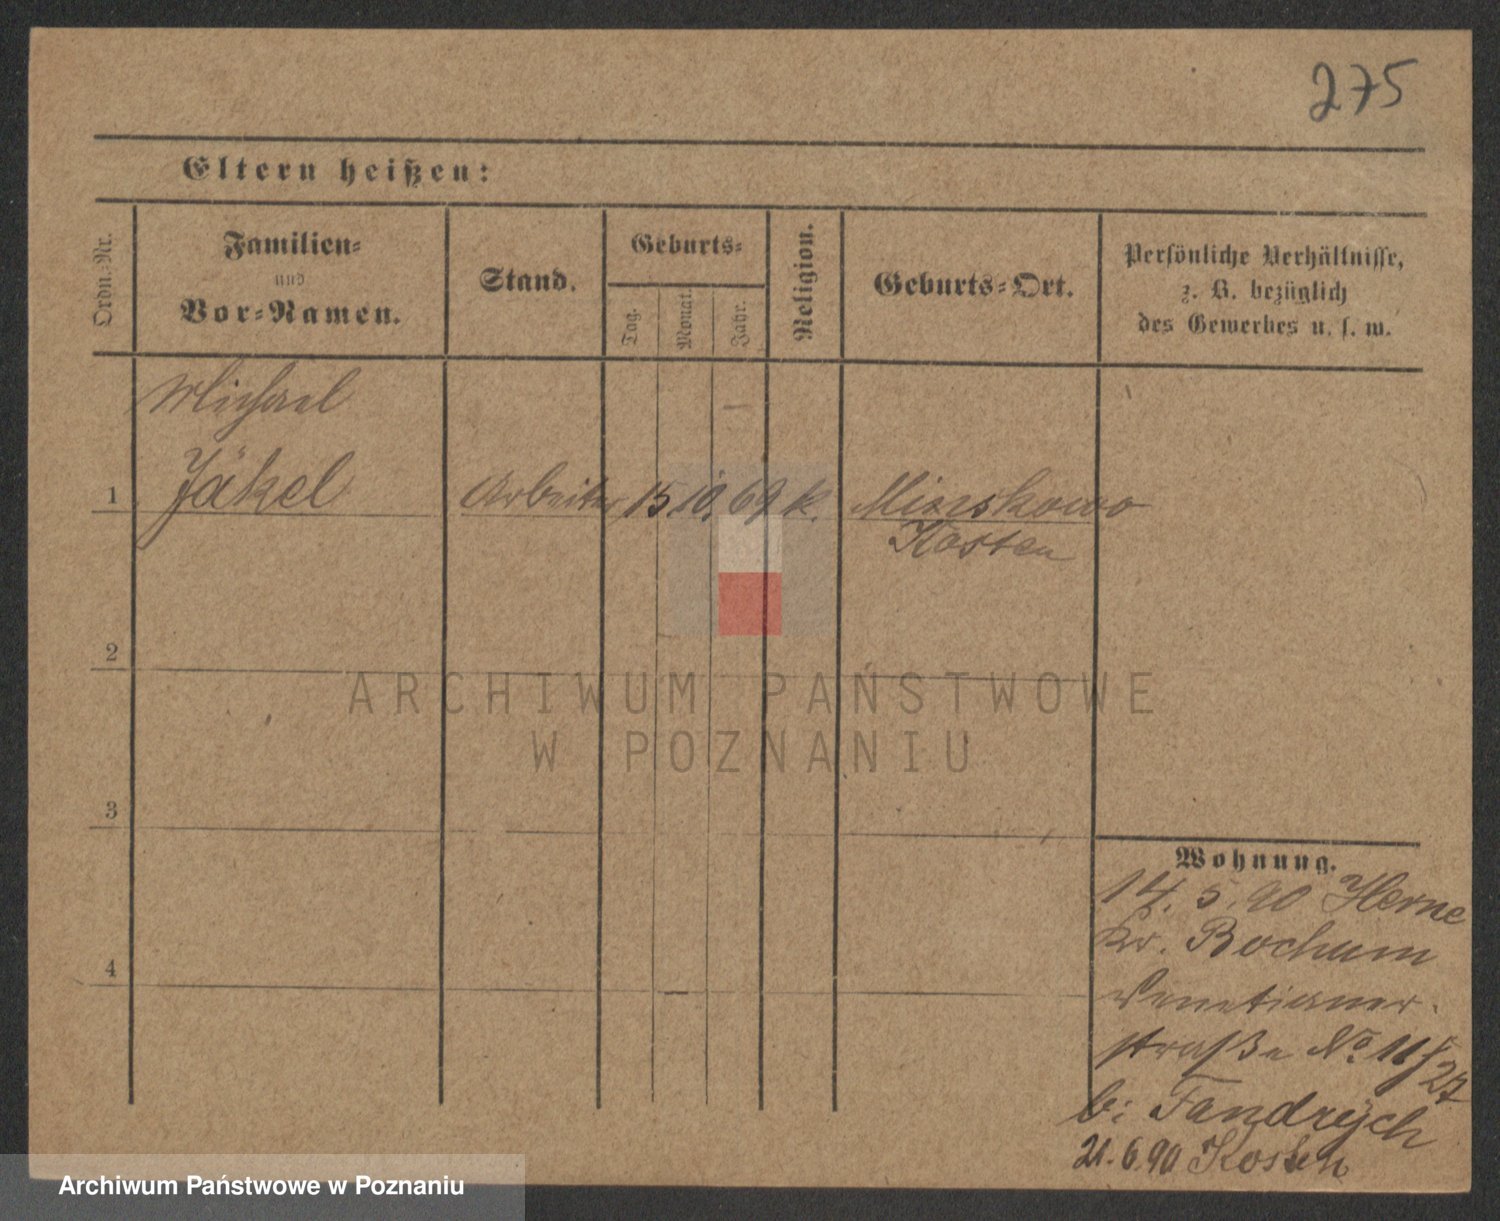 275
Eltern heißen:
Ordn.-Nr.
Familien-
und
Vor-Namen.
Stand.
Geburts-
Tag.
Monat.
Jahr.
Religion.
Geburts-Ort.
Persönliche Verhältnisse,
z. B. bezüglich
des Gewerbes u. s. w.
Michael
1 Jäkel Arbeiter 15 10. 69 k.
Kosten
2
3
4
ARCHIWUM PAŃSTWOWE
W POZNANIU
Wohnung.
14. 5. 90 Herne
Kr. Bochum
Venetianer-
straße No
b: Fandrych
21. 6. 90 Kosten
Archiwum Państwowe w Poznaniu